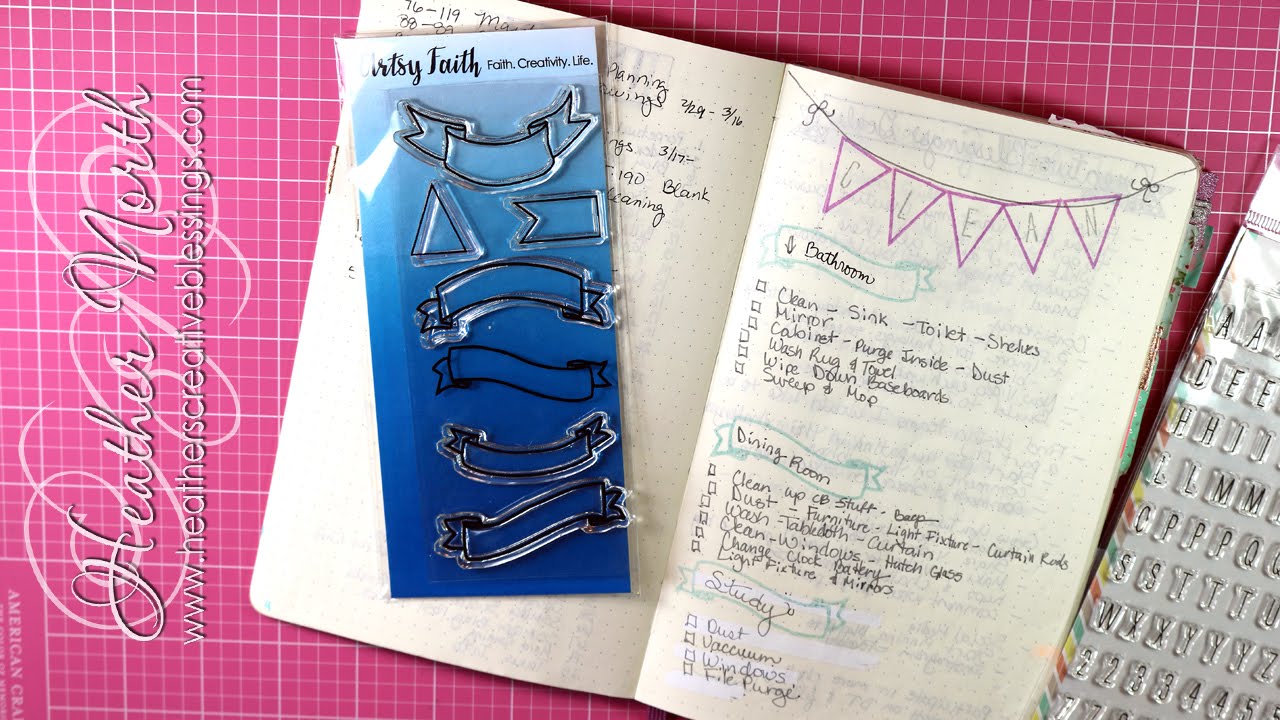 Heather North
www.heatherscreativeblessings.com
76-119
88-89
Artsy Faith Faith. Creativity. Life.
Planning
2/29 - 3/16
3/17-
190 Blank
CLEAN
↓ Bathroom
Clean - Sink - Toilet - Shelves
Mirror
Cabinet - Purge Inside - Dust
Wash Rug & Towel
Wipe Down Baseboards
Sweep & Mop
Dining Room
Clean up CB Stuff - Beep
Dust - Furniture - Light Fixture - Curtain Rods
Wash - Tablecloth - Curtain
Clean - Windows - Hutch Glass
Change Clock Battery
Light Fixture & Mirrors
Study
Dust
Vaccuum
Windows
File Purge
AMERICAN CRA
A A
C E E
H H I I
L L M M
C P P P Q
S S T T U
W X Y Y Z
2 2 3 3 4 5